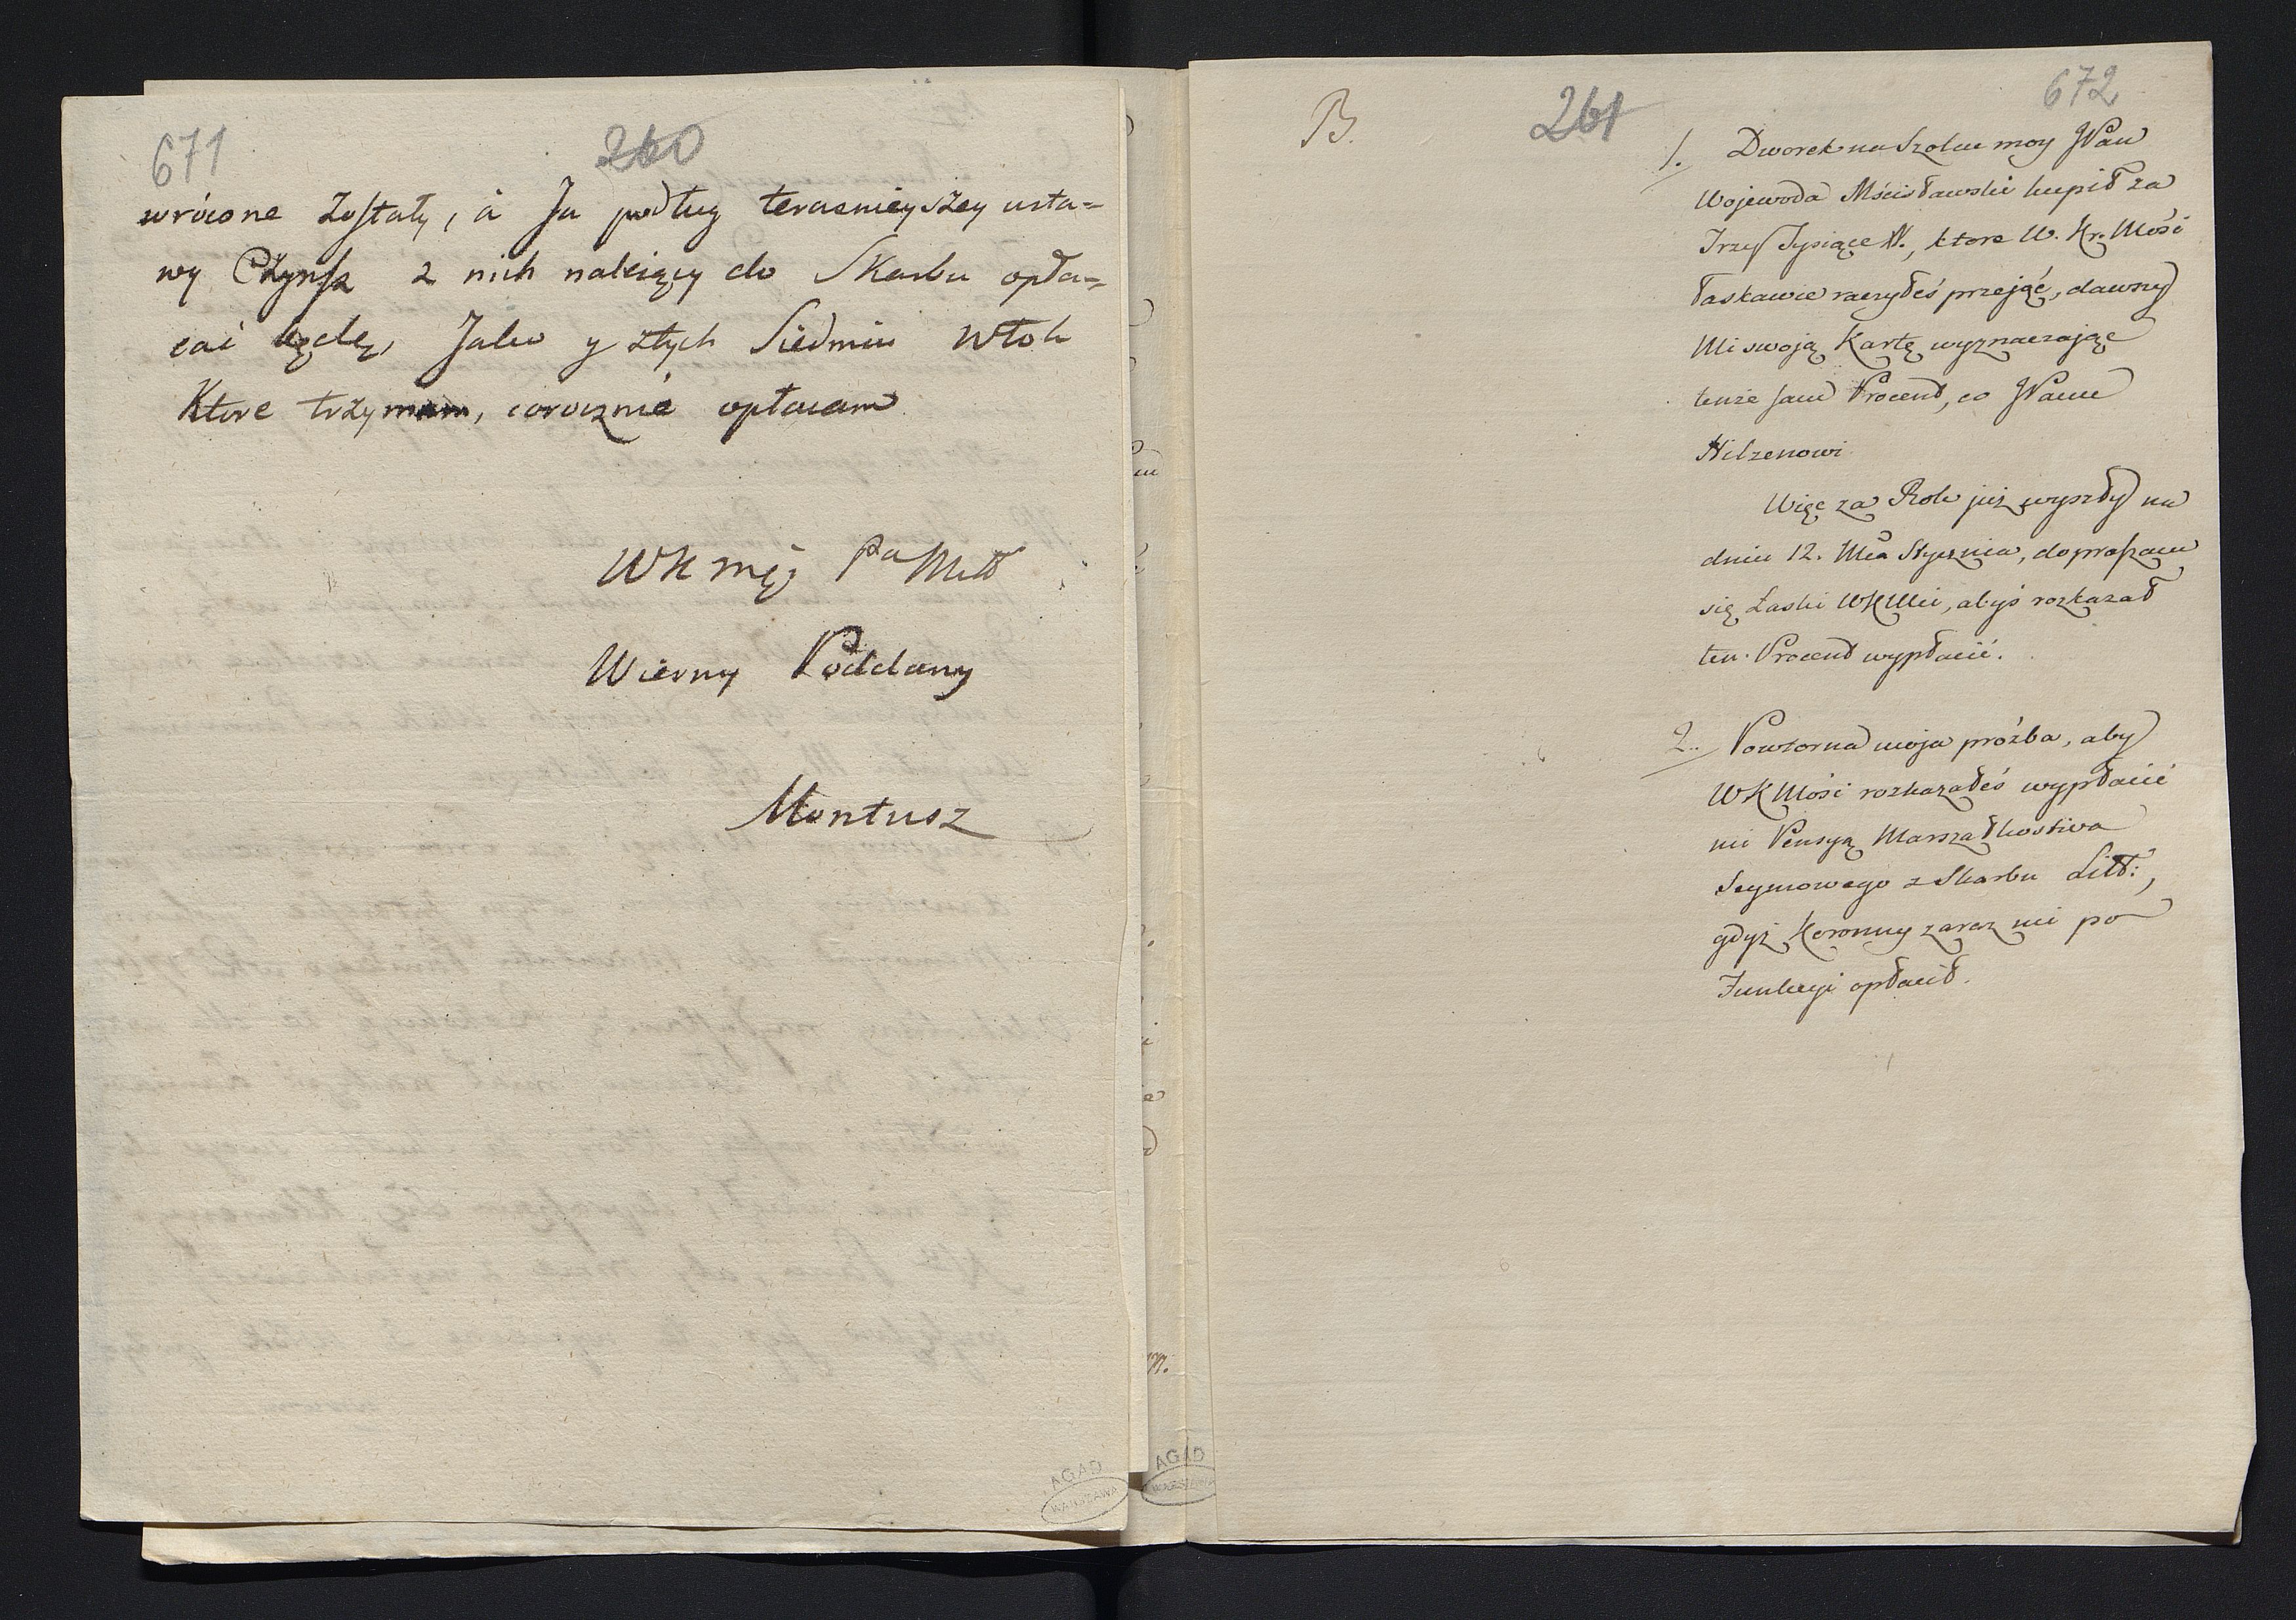 671
260
wrócone zostały, á Ja podług teraznieyszey usta=
wy Czynsz z nich należący do Skarbu opła=
cać będę, Jako y ztych Siedmiu Włok
Ktore trzymam, corocznie opłacam
WKMCi Pa Mił
Wierny Poddany
Montusz
AGAD
WARSZAWA
AGAD
WARSZAWA
B.
261
672
1. Dworek na Szolcu moy JPan
Wojewoda Mścisławski kupił za
Trzy Tysiące #., ktore W. Kr. Mość
łaskawie raczyłeś przejąć, dawszy
Mi swoją Kartę wyznaczającą
tenże sam Procent, co JPanu
Hilzenowi
Więc za Rok już wyszły na
dniu 12. Mca Stycznia, dopraszam
się Łaski WKMci, abyś rozkazał
ten Procent wypłacić.
2. Powtorna moja próźba, aby
WKMość rozkazałeś wypłacić
mi Pensyą Marszałkostwa
Seymowego z Skarbu Litt:,
gdyż Koronny zaraz mi po
Funkcyi opłacił.